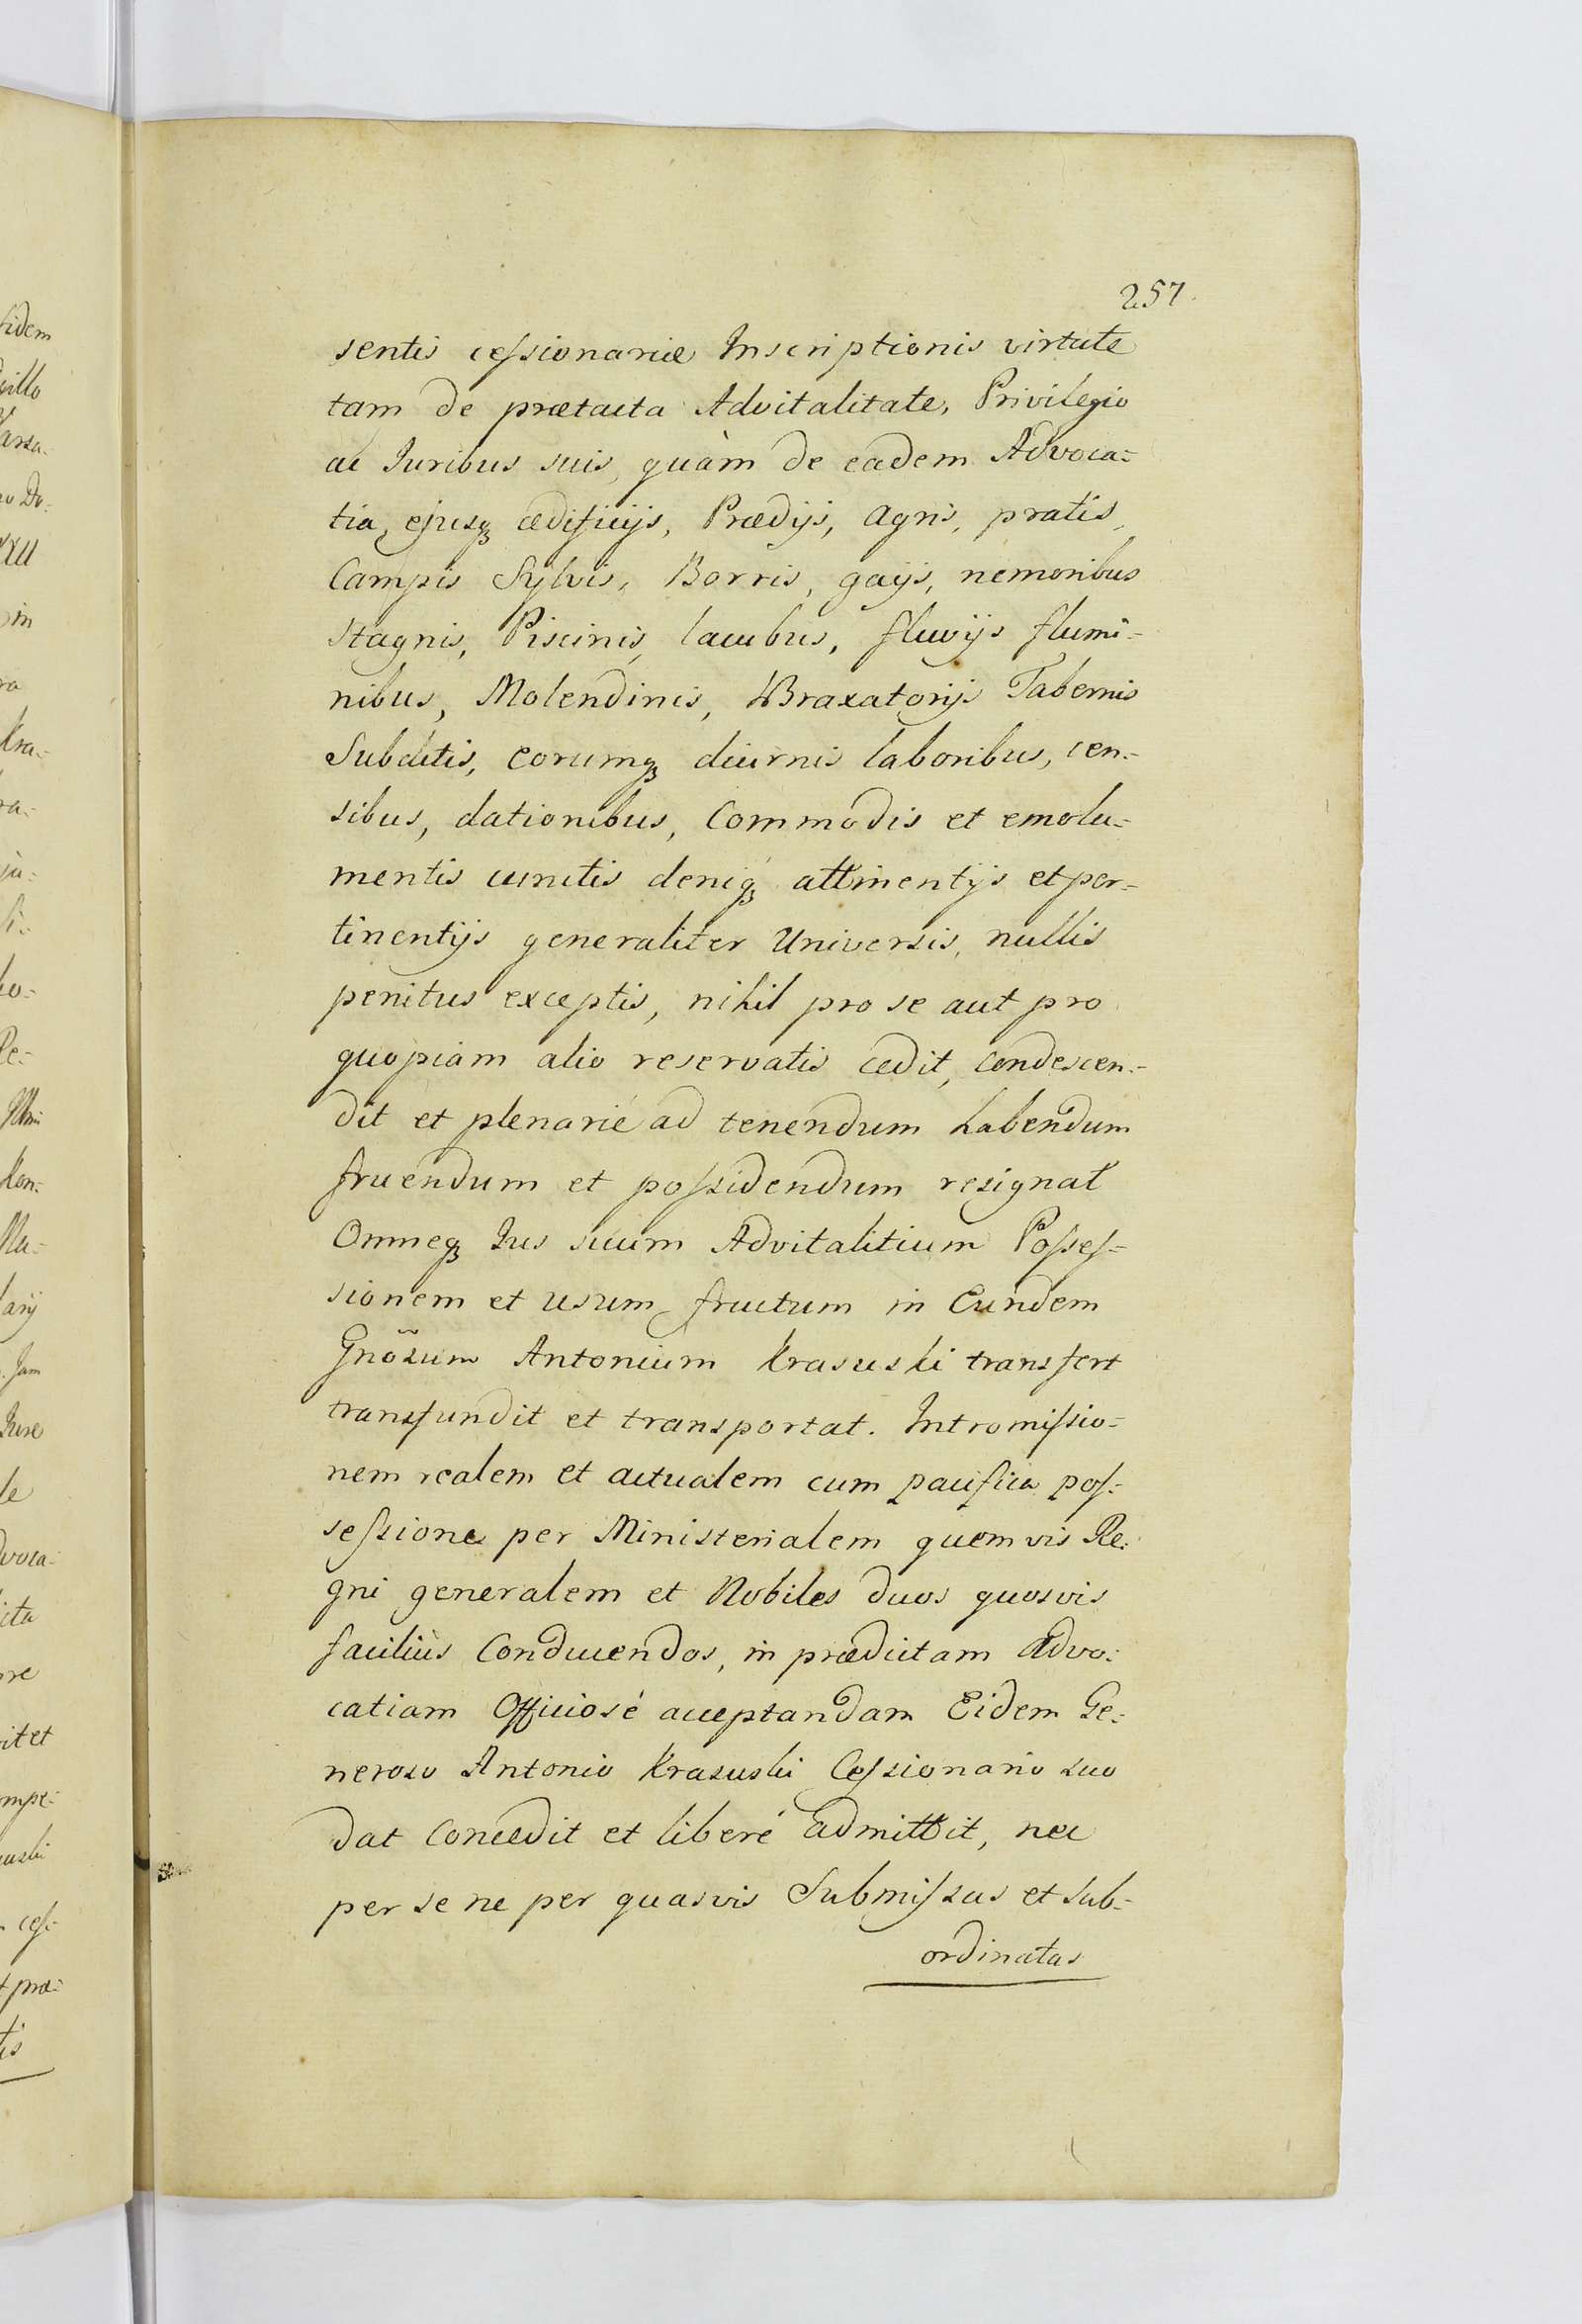 257.
sentis cessionariæ Inscriptionis virtute
tam de prætacta Advitalitate, Privilegio
ac Iuribus suis, quàm de eadem Advoca=
tia, ejusq3 ædificijs, Prædijs, agris, pratis,
Campis Sylvis, Borris, gays, nemoribus
Stagnis, Piscinis, lacubus, fluvijs flumi=
nibus, Molendinis, Braxatorijs Tabernis
Subditis, eorumq3 diurnis laboribus, cen=
sibus, dationibus, Commodis et emolu=
mentis cunctis deniq3 attinentijs et per=
tinentijs generaliter Universis, nullis
penitus exceptis, nihil pro se aut pro
quopiam alio reservatis cedit, condescen=
dit et plenarié ad tenendum habendum
fruendum et possidendum resignat
Omneq3 Ius suum Advitalitium Posses=
sionem et usum fructum in Eundem
Gnõsum Antonium Krasuski transfert
transfundit et transportat. Intromissio=
nem realem et actualem cum pacifica pos=
sessione per Ministerialem quemvis Re=
gni generalem et Nobiles duos quosvis
faciliùs Conducendos, in prædictam Advo=
catiam Officiosé acceptandam Eidem Ge=
neroso Antonio Krasuski Cessionario suo
dat Concedit et liberé admittit, nec
per se ne per quasvis Submissas et sub=
ordinatas